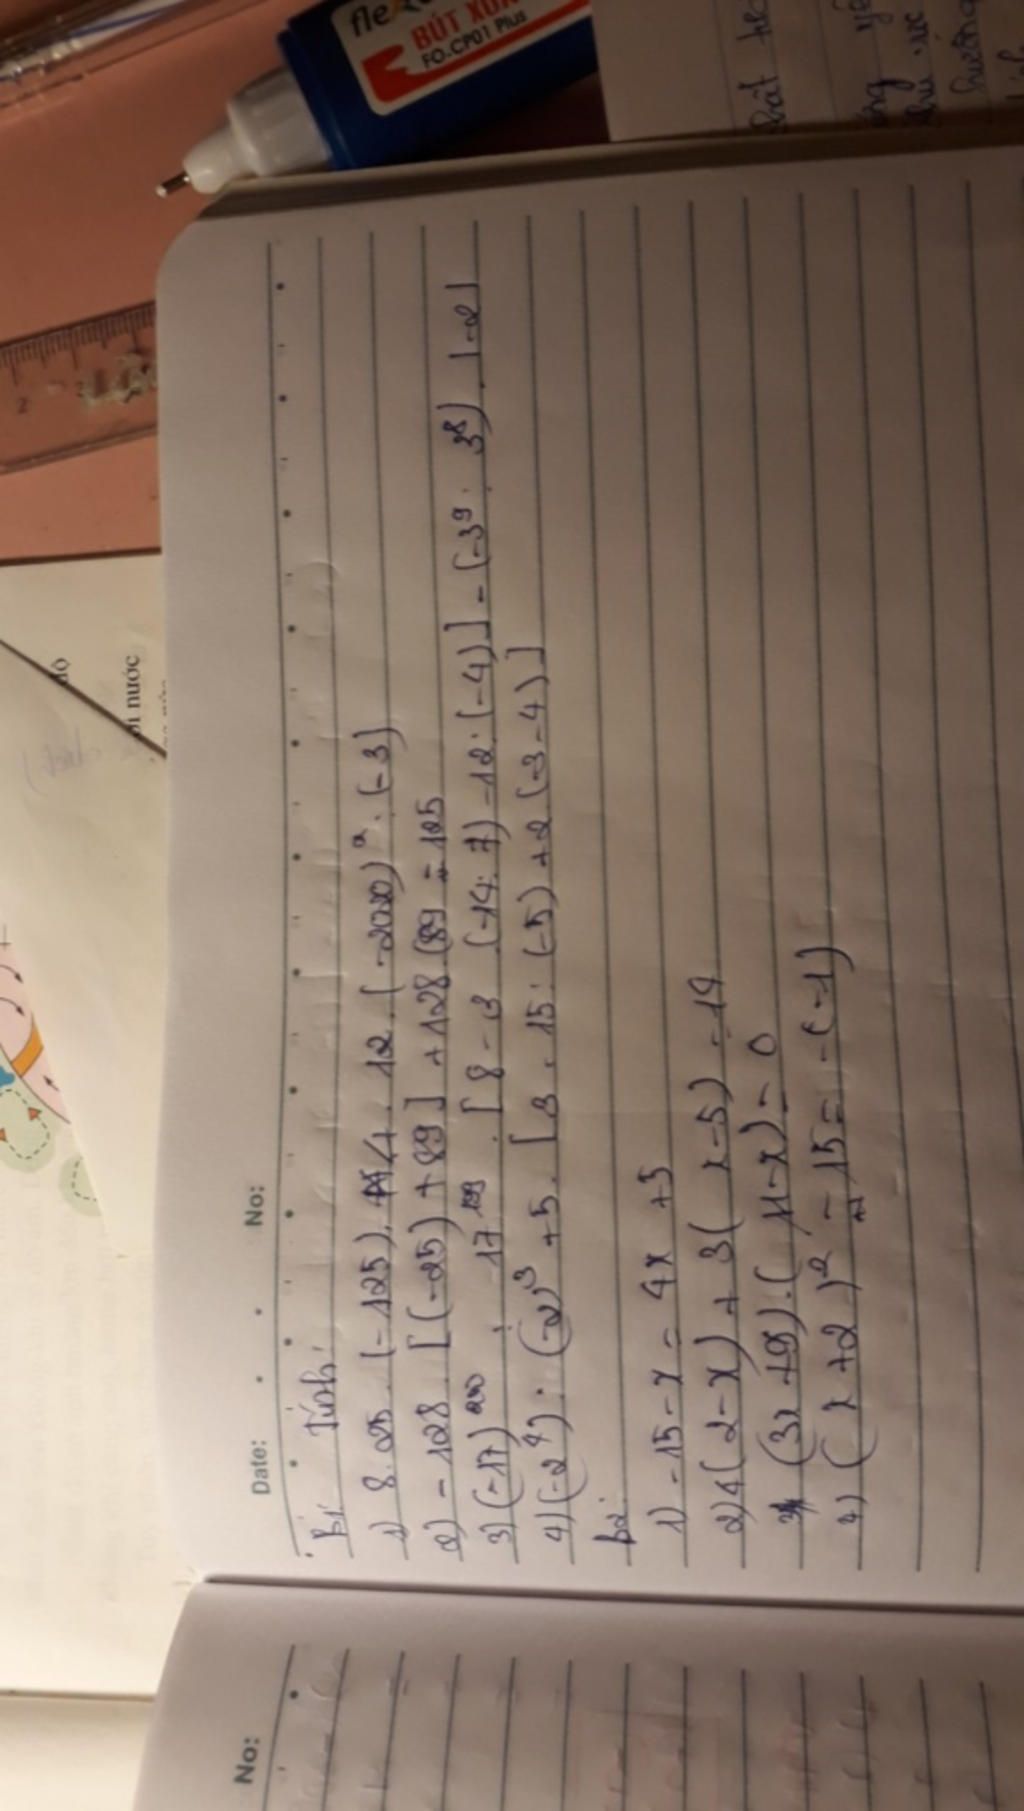 fle
BÚT XÓA
FO-CP01 Plus
2
độ
ơi nước
No:
Date: No:
B1: Tính:
1) 8.25.(-125).4.12.(-2020)².(-3)
2) -128.[(-25)+89]+128.(89-125
3) (-17)²⁰⁰ : 17¹⁹⁹ . [8-3 (-14:7)-12:(-4)]-(-3⁹ : 3⁸).|-2|
4) (-2⁴):(-2)³+5.[3.15:(-5)+2.(-3-4)]
B2:
1) -15-x=4x+5
2) 4(2-x)+3(x-5)=14
3) (3x+9).(11-x)=0
4) (x+2)²-15=-(-1)